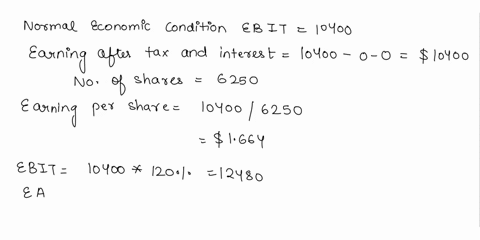 Normal Economic Condition EBIT = 10400
Earning after tax and interest = 10400 - 0 - 0 = $10400
No. of shares = 6250
Earning per share = 10400 / 6250
= $1.664
EBIT = 10400 * 120% = 12480
EA